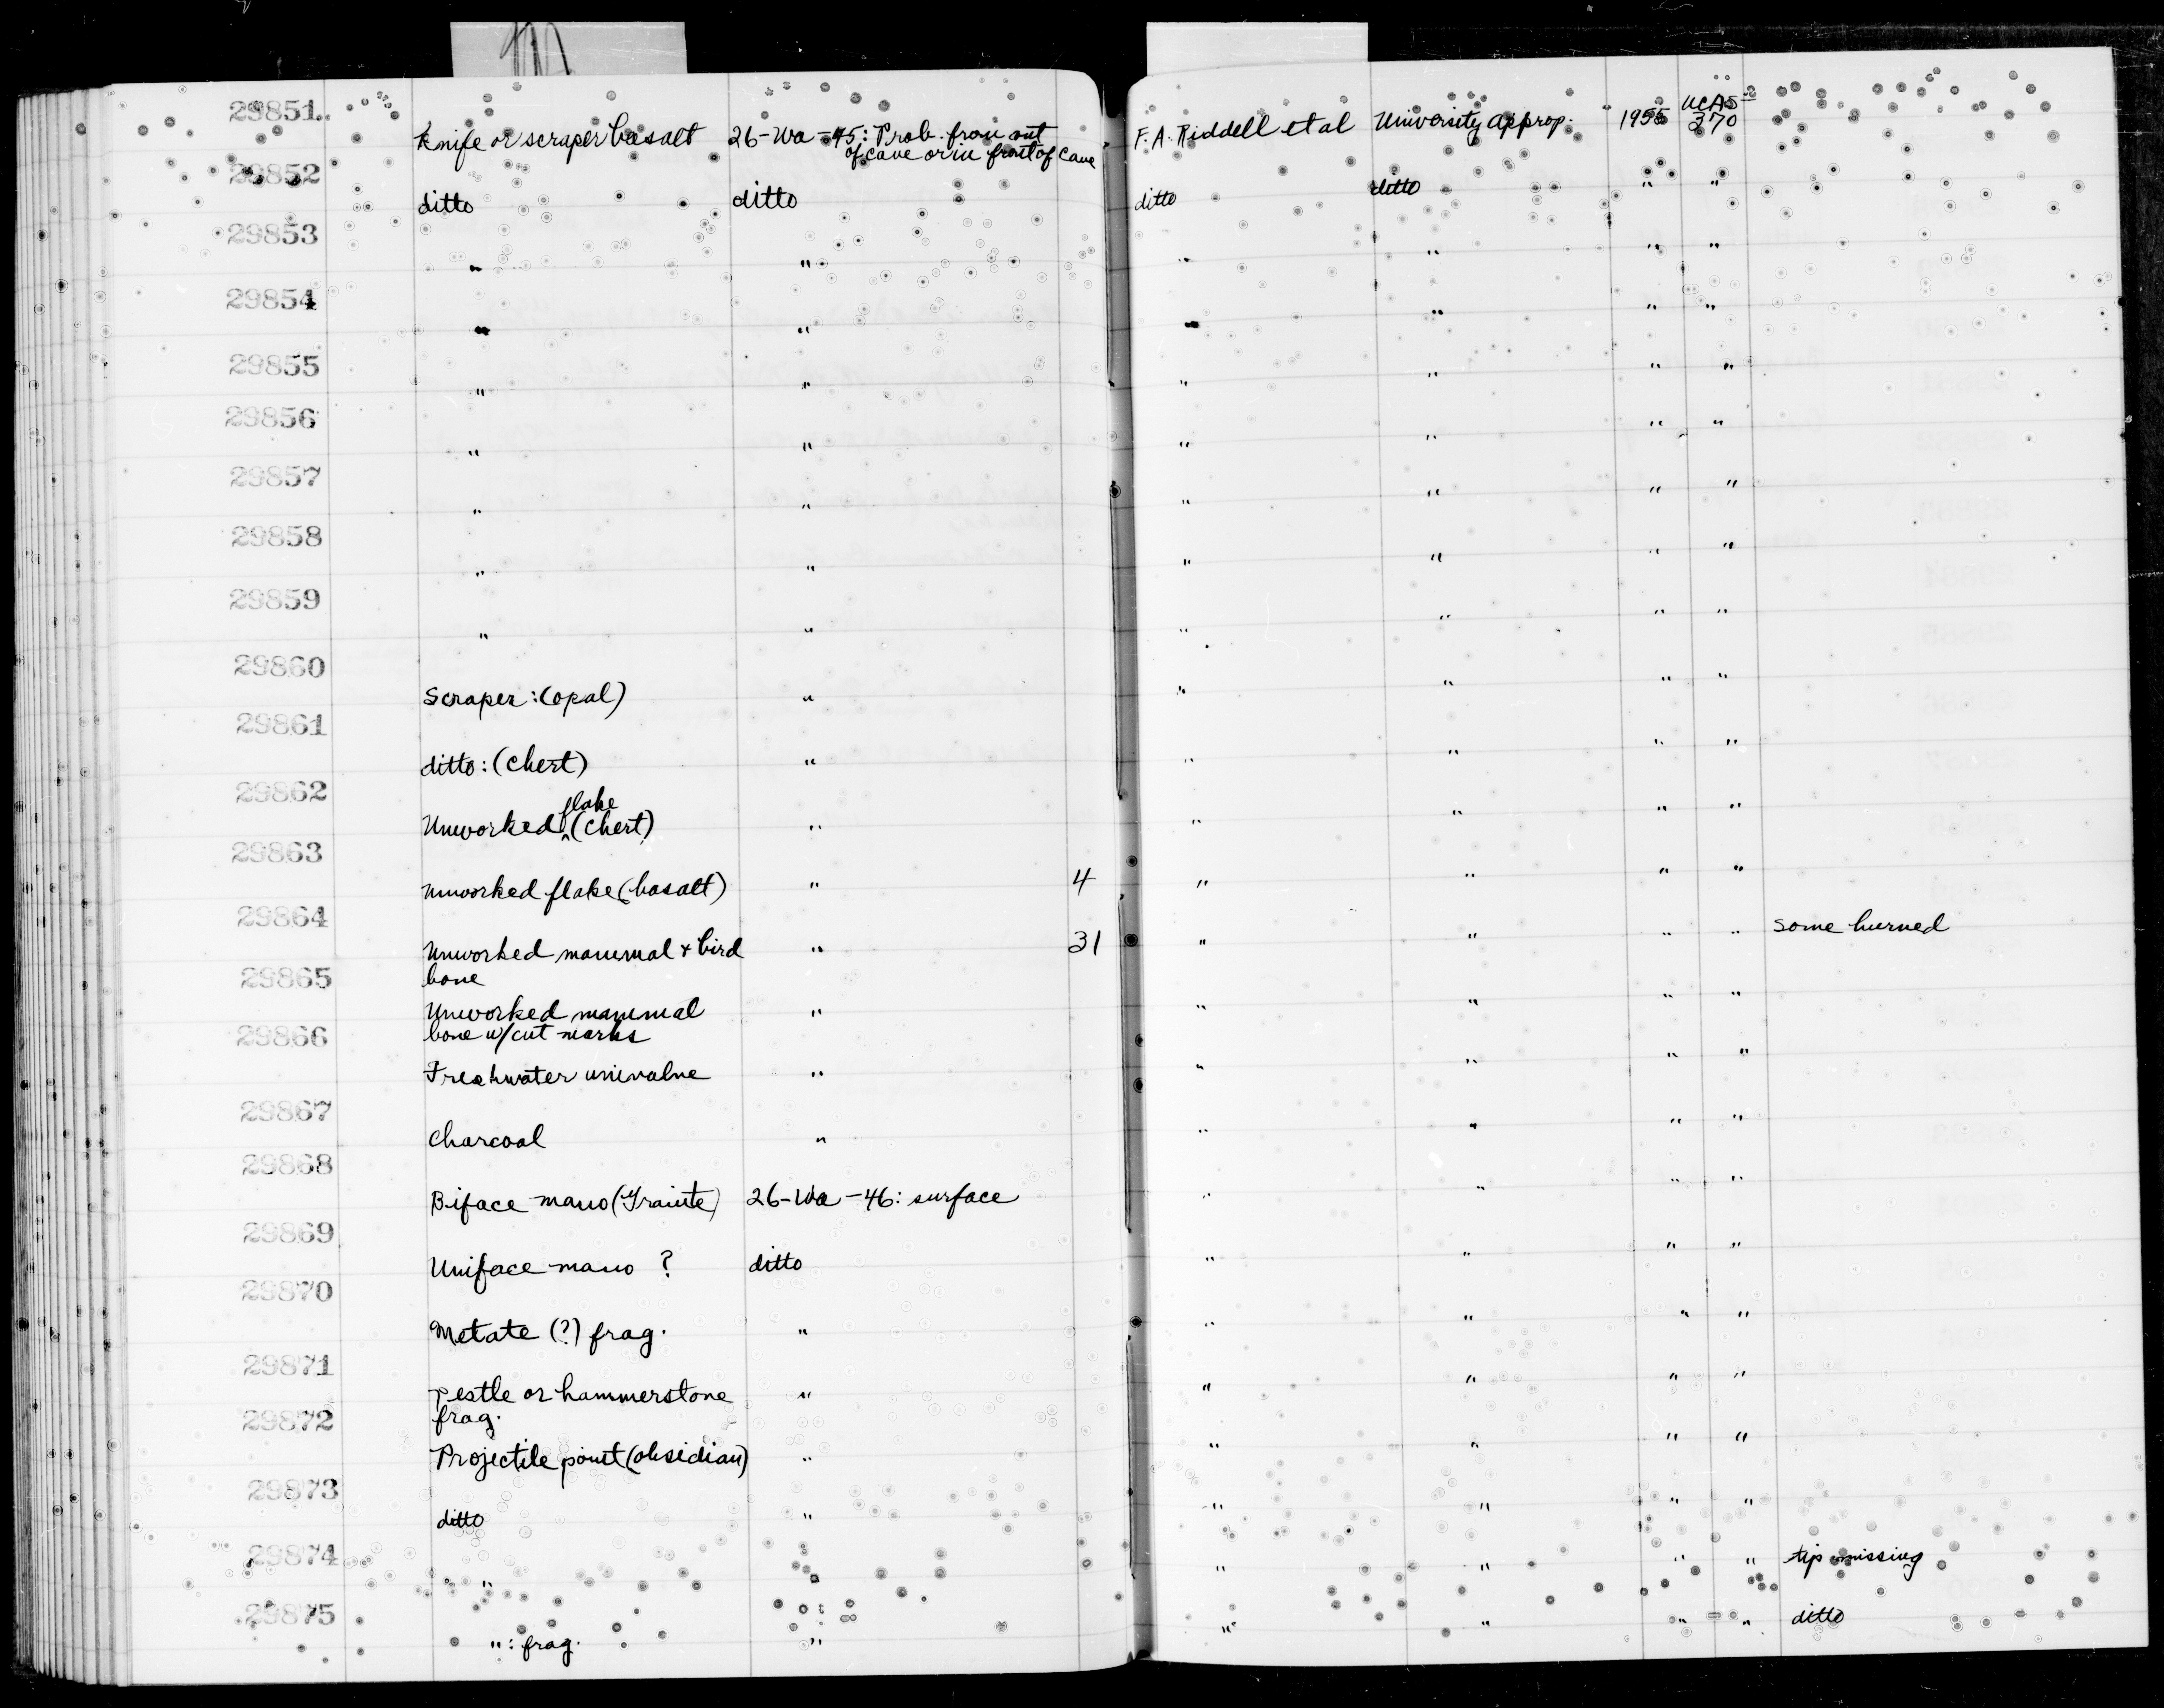 29851 Knife or scraper basalt 26-Wa-45: Prob. from out F. A. Riddell et al University approp. 1955 UCAS
of cave or in front of cave 370
29852 ditto ditto ditto ditto " "
29853 " " " " " "
29854 " " " " " "
29855 " " " " " "
29856 " " " " " "
29857 " " " " " "
29858 " " " " " "
29859 " " " " " "
29860 Scraper: (opal) " " " " "
29861 ditto: (chert) " " " " "
29862 Unworked flake (chert) " " " " "
29863 Unworked flake (basalt) " 4 " " " "
29864 Unworked mammal + bird " 31 " " " " some burned
bone
29865 Unworked mammal " " " " "
bone w/cut marks
29866 Freshwater univalve " " " " "
29867 Charcoal " " " " "
29868 Biface mano (Granite) 26-Wa-46: surface " " " "
29869 Uniface mano ? ditto " " " "
29870 Metate (?) frag. " " " " "
29871 Pestle or hammerstone " " " " "
frag.
29872 Projectile point (obsidian) " " " " "
29873 ditto " " " " "
29874 " " " " " " tip missing
29875 ": frag. " " " " " ditto